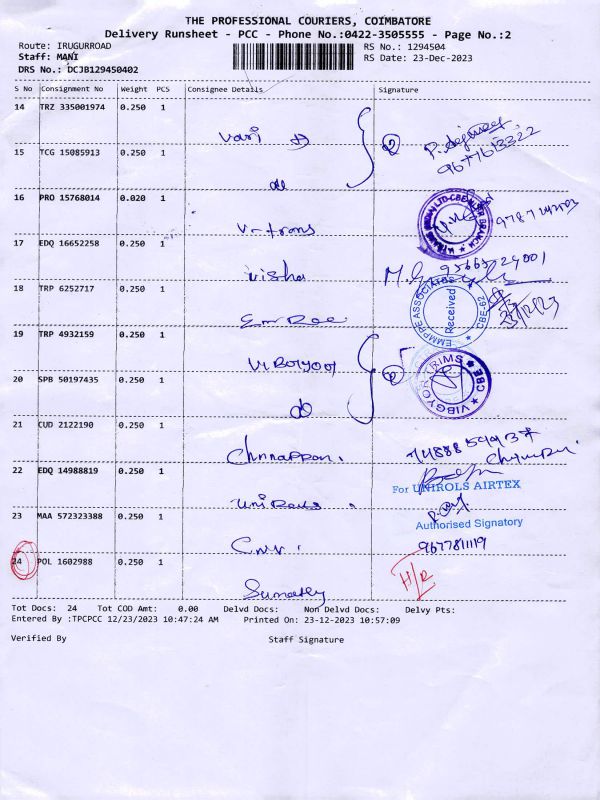 THE PROFESSIONAL COURIERS, COIMBATORE
Delivery Runsheet - PCC - Phone No.:0422-3505555 - Page No.:2
Route: IRUGURROAD
RS No.: 1294504
Staff: MANI
RS Date: 23-Dec-2023
DRS No.: DCJB129450402
S No Consignment No Weight PCS Consignee Details Signature
14 TRZ 335001974 0.250 1
Vari
15 TCG 15085913 0.250 1
do
16 PRO 15768014 0.020 1
V-trans
17 EDQ 16652258 0.250 1
Visha
18 TRP 6252717 0.250 1
EMMPPE ASSOCIATES
Received
CBE-62
19 TRP 4932159 0.250 1
Vibgyor
VIBGYOR TRIMS
CBE
20 SPB 50197435 0.250 1
do
21 CUD 2122190 0.250 1
Chinnappan.
22 EDQ 14988819 0.250 1
For UNIROLS AIRTEX
Unirols
23 MAA 572323388 0.250 1
Authorised Signatory
9677811119
24 POL 1602988 0.250 1
Tot Docs: 24 Tot COD Amt: 0.00 Delvd Docs: Non Delvd Docs: Delvy Pts:
Entered By :TPCPCC 12/23/2023 10:47:24 AM Printed On: 23-12-2023 10:57:09
Verified By Staff Signature